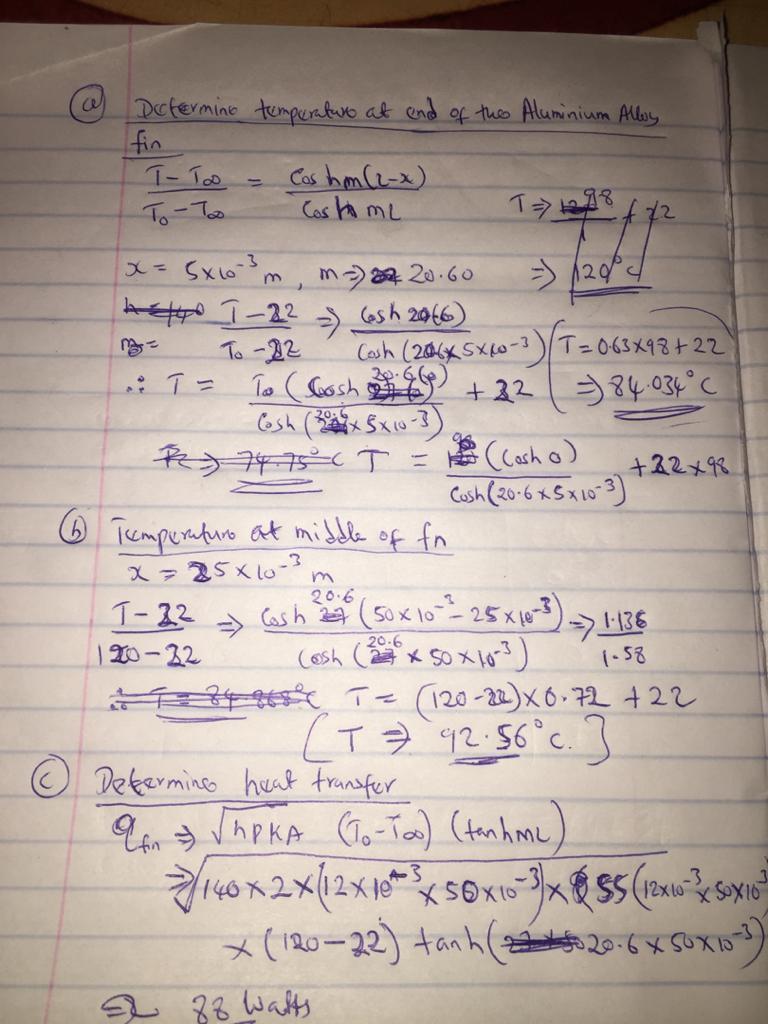 (a) Determine temperature at end of two Aluminium Alloy
fin
T - T∞ / T₀ - T∞ = Cos hm(L-x) / Cosh mL
T ⇒ 98 + 22
x = 5x10⁻³ m, m ⇒ 20.60 ⇒ 120°C
h = 140 T - 22 / T₀ - 22 ⇒ Cosh 20.6(0) / Cosh (20.6x5x10⁻³)
T = 0.63x98+22
m =
∴ T = T₀ (Cosh 20.6(0)) / Cosh (20.6x5x10⁻³) + 22 ⇒ 84.034°C
⇒ 74.75°C T = 98 (Cosh 0) / Cosh(20.6x5x10⁻³) + 22 x 98
(b) Temperature at middle of fn
x = 25x10⁻³ m
T - 22 / 120 - 22 ⇒ Cosh 20.6 (50x10⁻³ - 25x10⁻³) / Cosh (20.6 x 50x10⁻³) ⇒ 1.136 / 1.58
∴ T = 84.868°C T = (120-22)x0.72 + 22
[T ⇒ 92.56°C.]
(c) Determine heat transfer
q fin ⇒ √hPKA (T₀-T∞) (tanhmL)
⇒ √140x2x(12x10⁻³x50x10⁻³)x 55(12x10⁻³x50x10⁻³
x (120-22) tanh( 20.6x50x10⁻³)
⇒ 88 Watts